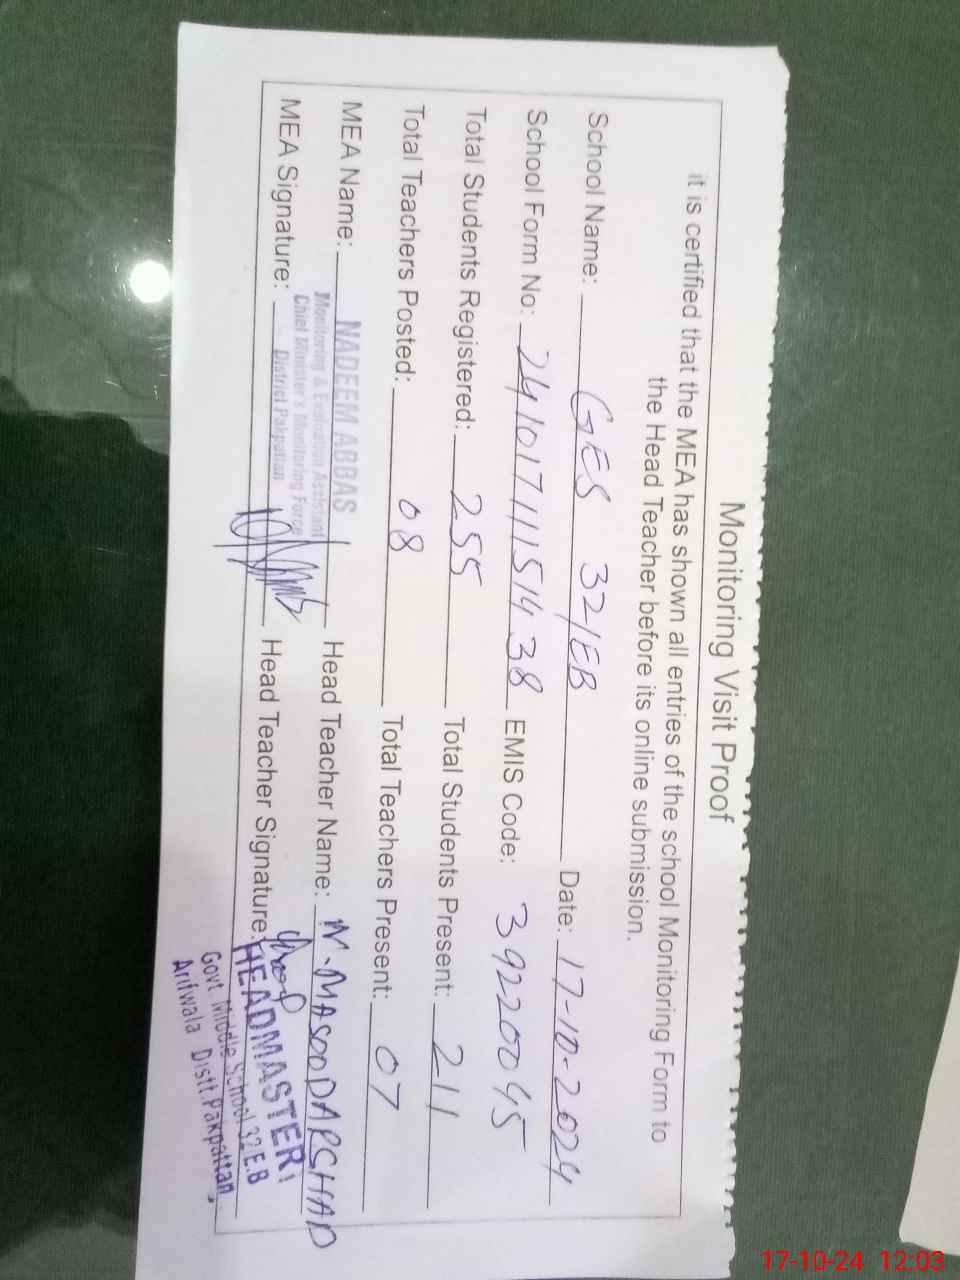 Monitoring Visit Proof
it is certified that the MEA has shown all entries of the school Monitoring Form to
the Head Teacher before its online submission.
School Name: GES 32/EB Date: 17-10-2024
School Form No: 241017111514 38 EMIS Code: 39220045
Total Students Registered: 255 Total Students Present: 211
Total Teachers Posted: 08 Total Teachers Present: 07
MEA Name: NADEEM ABBAS Head Teacher Name: M. MASOOD ARSHAD
Monitoring & Evaluation Assistant
Chief Minister's Monitoring Force
District Pakpattan
MEA Signature: Head Teacher Signature:
HEADMASTER
Govt. Middle School 32 E.B
Arifwala Distt. Pakpattan.
17-10-24 12:03